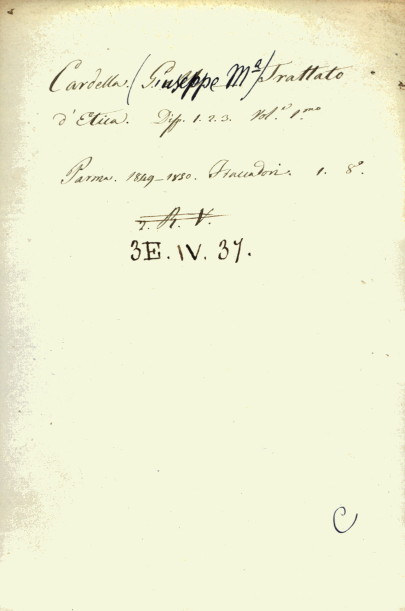 Cardella. (Giuseppe Mᵃ) Trattato
d'Etica. Disp. 1. 2. 3. Vol.º 1.ᵐᵒ
Parma. 1849-1850. Fiaccadori. 1. 8º
2. R. V.
3E. IV. 37.
C